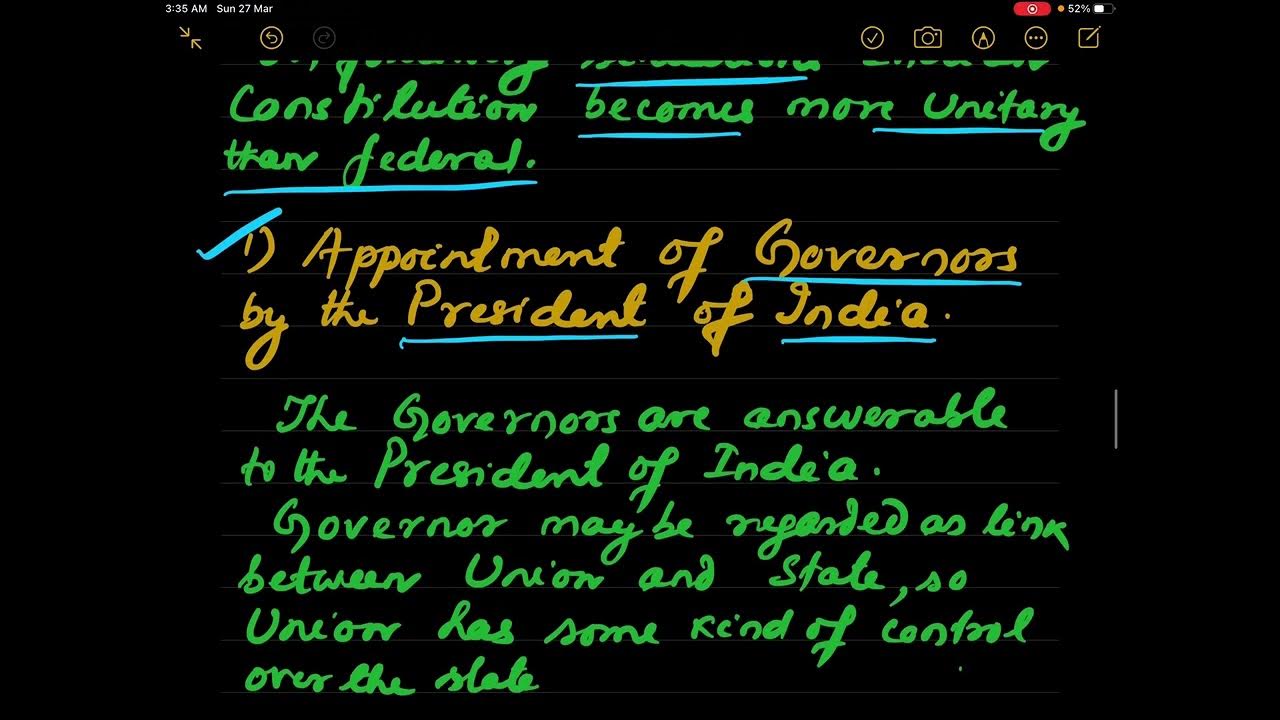 3:35 AM Sun 27 Mar 52%
Constitution becomes more Unitary
than federal.
1) Appointment of Governors
by the President of India.
The Governors are answerable
to the President of India.
Governor may be regarded as link
between Union and State, so
Union has some kind of control
over the state